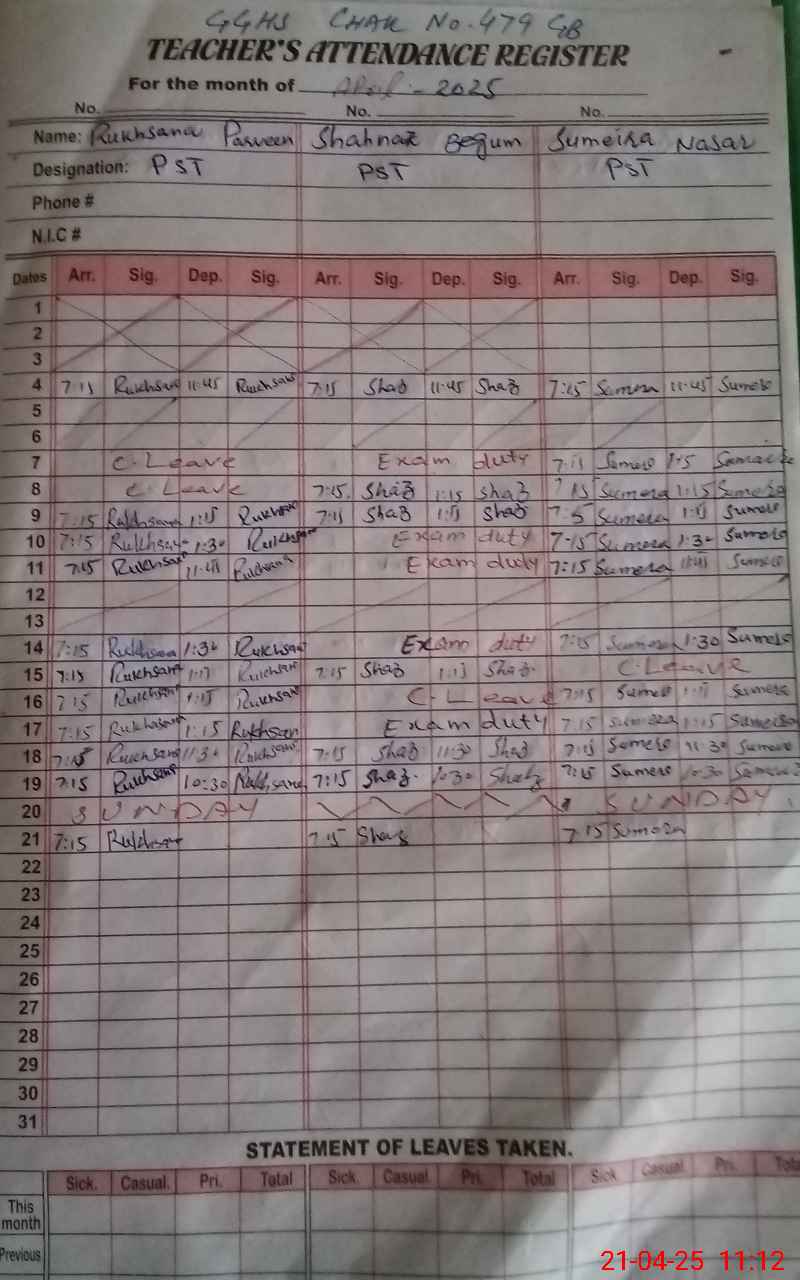 GGHS CHAK No. 479 GB
TEACHER'S ATTENDANCE REGISTER
For the month of April - 2025
No. No. No.
Name: Rukhsana Parveen Shahnaz Begum Sumeira Nasar
Designation: PST PST PST
Phone #
N.I.C #
Dates Arr. Sig. Dep. Sig. Arr. Sig. Dep. Sig. Arr. Sig. Dep. Sig.
1
2
3
4 7:15 Rukhsana 11:45 Rukhsana 7:15 Shaz 11:45 Shaz 7:15 Sumera 11:45 Sumera
5
6
7 C. Leave Exam duty 7:15 Sumera Sumera
8 C. Leave 7:15 Shaz 1:15 Shaz 7:15 Sumera 1:15 Sumera
9 7:15 Rukhsana 1:15 Rukhsana 7:15 Shaz 1:15 Shaz Sumera 1:15 Sumera
10 7:15 Rukhsana 1:30 Rukhsana Exam duty 7:15 Sumera 1:30 Sumera
11 7:15 Rukhsana 11:45 Rukhsana Exam duty 7:15 Sumera 11:45 Sumera
12
13
14 7:15 Rukhsana 1:30 Rukhsana Exam duty 7:15 Sumera 1:30 Sumera
15 7:15 Rukhsana 1:15 Rukhsana 7:15 Shaz 1:15 Shaz C. Leave
16 7:15 Rukhsana 1:15 Rukhsana C. Leave 7:15 Sumera 1:15 Sumera
17 7:15 Rukhsana 1:15 Rukhsana Exam duty 7:15 Sumera 1:15 Sumera
18 7:15 Rukhsana 11:30 Rukhsana 7:15 Shaz 11:30 Shaz 7:15 Sumera 11:30 Sumera
19 7:15 Rukhsana 10:30 Rukhsana 7:15 Shaz 10:30 Shaz 7:15 Sumera 10:30 Sumera
20 SUNDAY SUNDAY
21 7:15 Rukhsana 7:15 Shaz 7:15 Sumera
22
23
24
25
26
27
28
29
30
31
STATEMENT OF LEAVES TAKEN.
Sick. Casual. Pri. Total Sick. Casual. Pri. Total Sick Casual. Pri. Total
This month
Previous
21-04-25 11:12